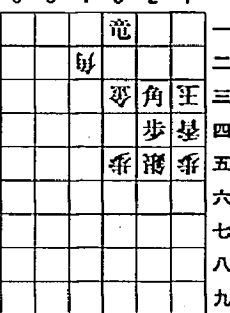 竜 一
角 二
金 角 玉 三
歩 香 四
歩 銀 歩 五
六
七
八
九